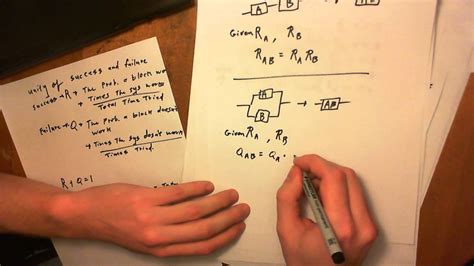 unity of success and failure
success → R → The Prob. a block works
→ Times The sys works
Total Time Tried
Failure → Q → The Prob. a block doesn't
work
→ Times The sys doesn't work
Times Tried.
R + Q = 1
A B
Given R_A , R_B
R_AB = R_A R_B
A
B
→ AB
Given R_A , R_B
Q_AB = Q_A ·